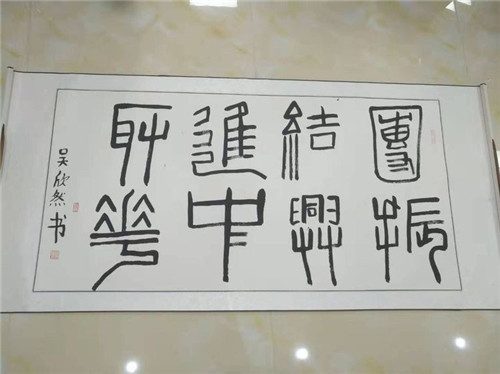 團結進取
振興中華
吴欣然书